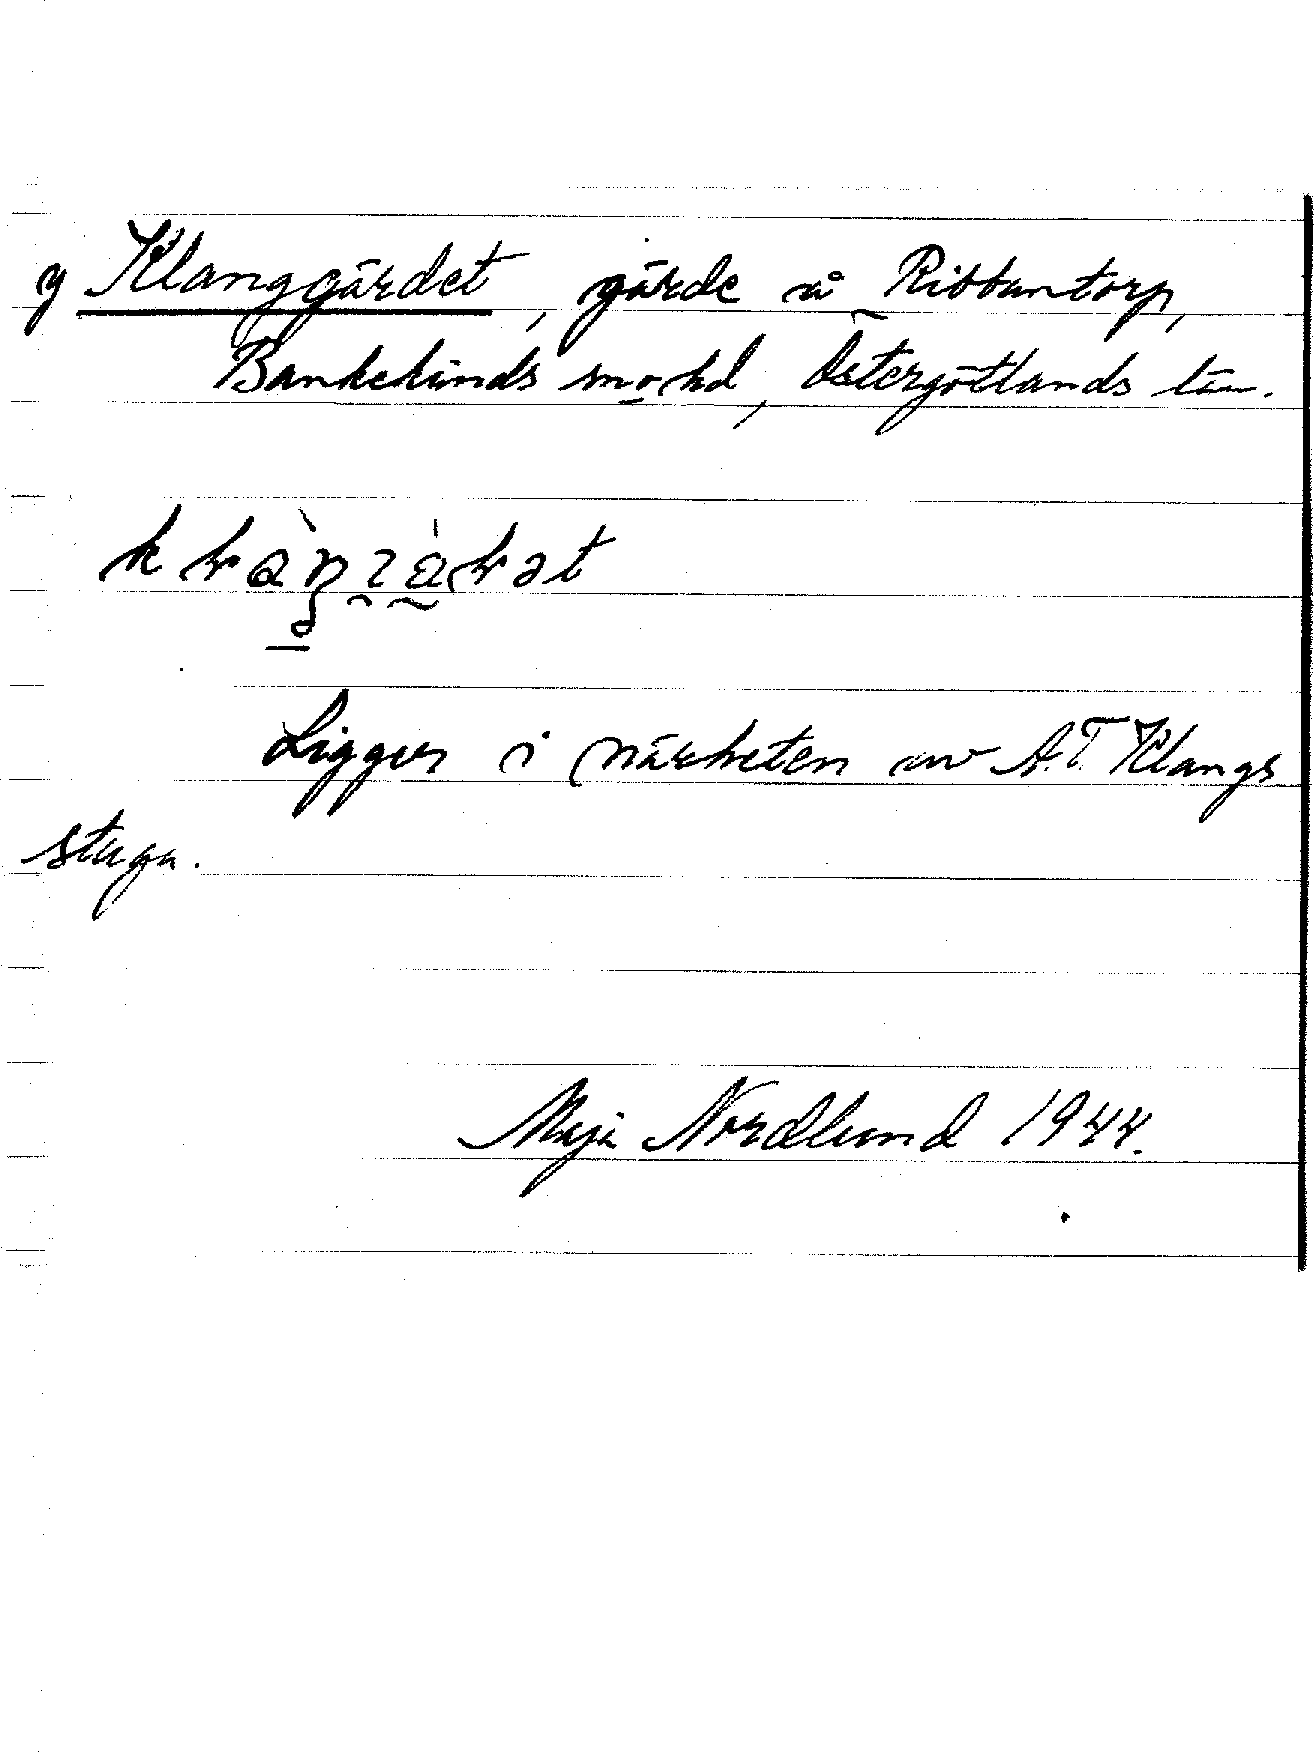 y Klanggärdet, gärde å Ribbantorp,
Bankekinds sn o hd, Östergötlands län.
Ligger i närheten av A.T. Klangs
stuga.
Maja Nordlund 1944.